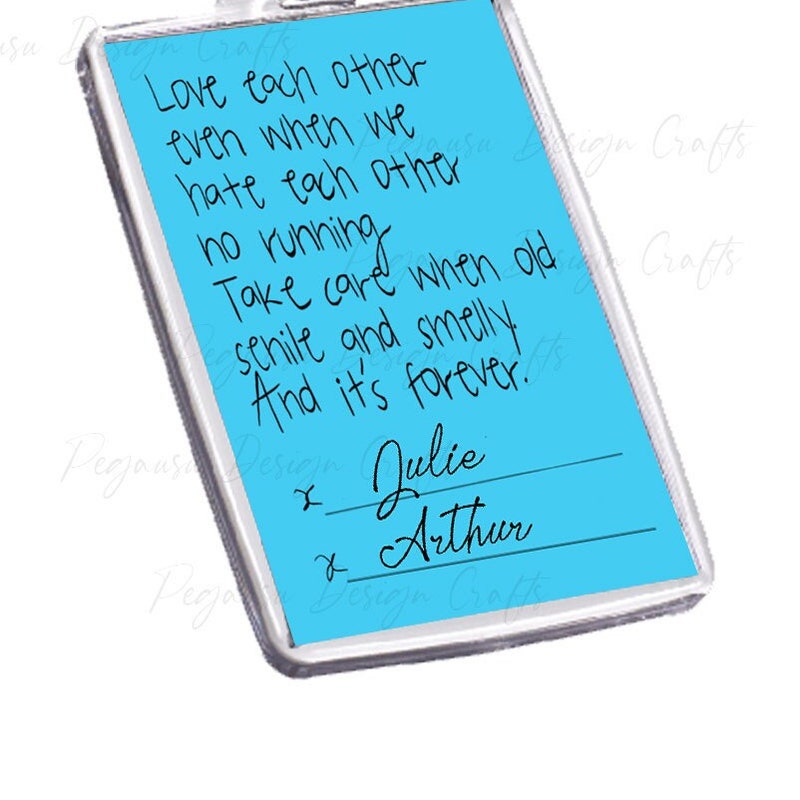 Love each other
even when we
hate each other
no running
Take care when old
senile and smelly.
And it's forever.
x Julie
x Arthur
Pegausu Design Crafts
Pegausu Design Crafts
Pegausu Design Crafts
Pegausu Design Crafts
Pegausu Design Crafts